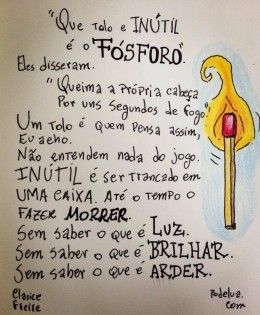 "Que tolo e INÚTIL
é o "FÓSFORO".
Eles disseram.
"Queima a própria cabeça
Por uns segundos de fogo."
Um tolo é quem pensa assim,
Eu acho.
Não entendem nada do jogo.
INÚTIL é ser trancado em
UMA CAIXA. Até o tempo o
FAZER MORRER.
Sem saber o que é LUZ.
Sem saber o que é BRILHAR.
Sem saber o que é ARDER.
Clarice
Freire
Podelua.
com